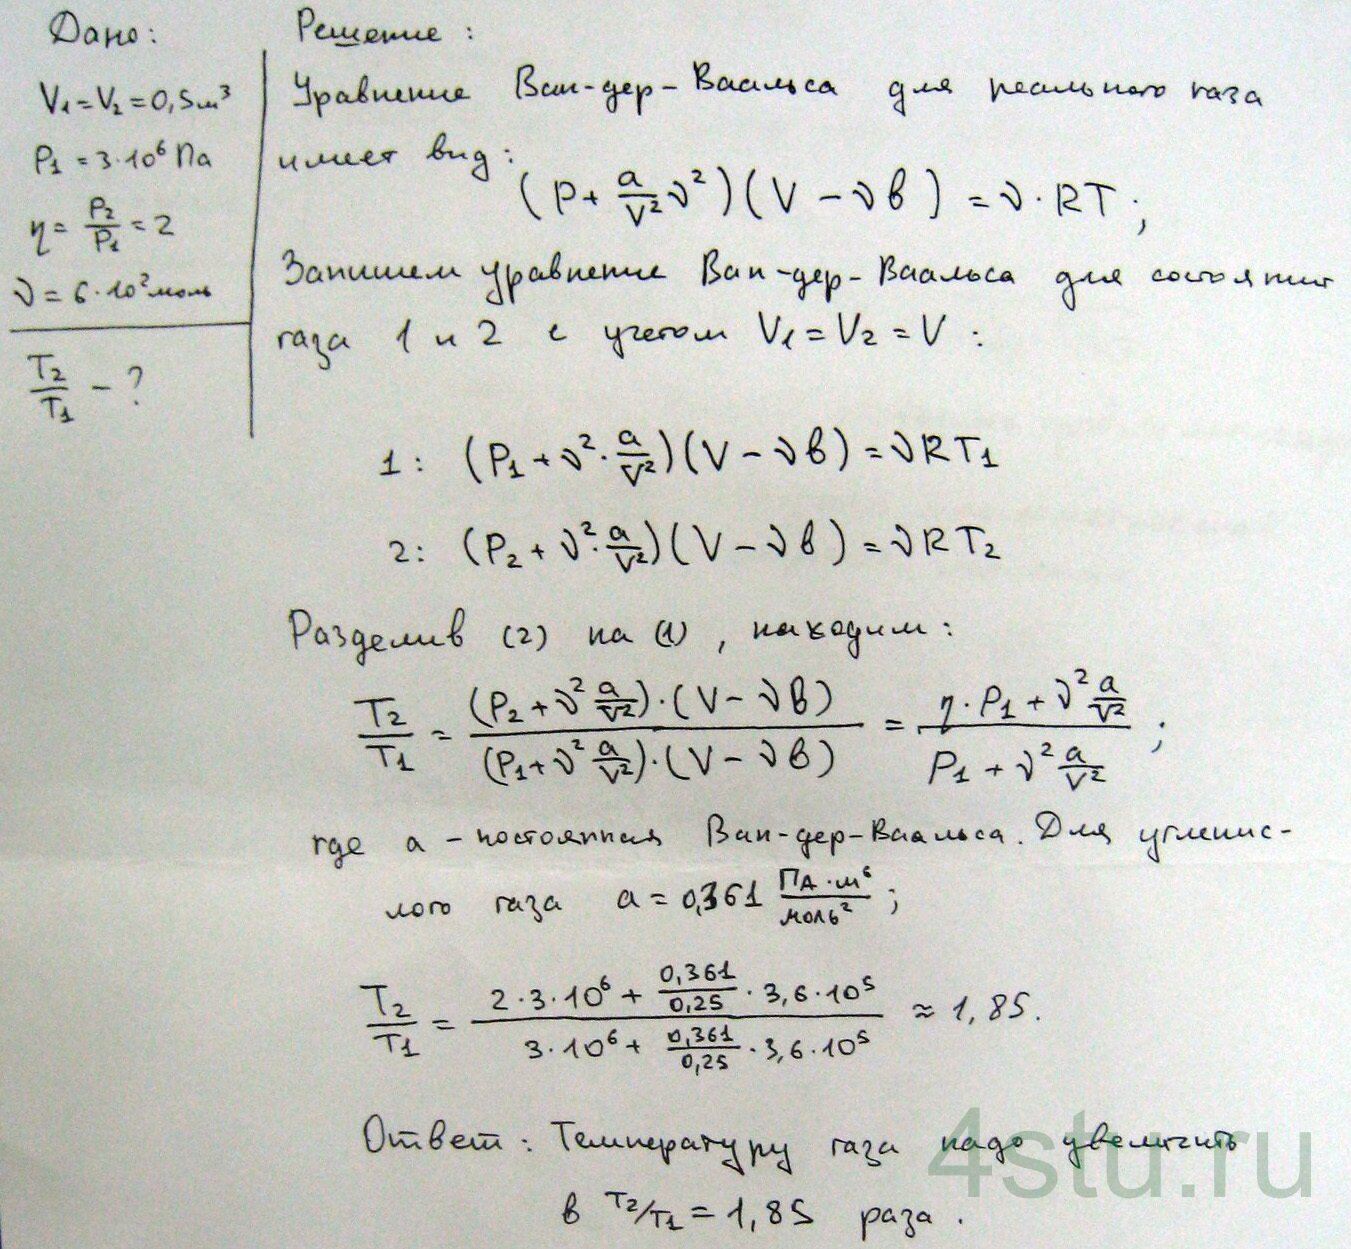 Дано:
V₁=V₂=0,5м³
P₁=3·10⁶ Па
η=P₂/P₁=2
ν=6·10²моль
T₂/T₁ - ?
Решение:
Уравнение Ван-дер-Ваальса для реального газа
имеет вид:
(P+a/V² ν²)(V-νв)=ν·RT;
Запишем уравнение Ван-дер-Ваальса для состояний
газа 1 и 2 с учетом V₁=V₂=V:
1: (P₁+ν²·a/V²)(V-νв)=νRT₁
2: (P₂+ν²·a/V²)(V-νв)=νRT₂
Разделив (2) на (1), находим:
T₂/T₁ = (P₂+ν² a/V²)·(V-νв) / (P₁+ν² a/V²)·(V-νв) = η·P₁+ν² a/V² / P₁+ν² a/V² ;
где a - постоянная Ван-дер-Ваальса. Для углекис-
лого газа a=0,361 Па·м⁶/моль²;
T₂/T₁ = 2·3·10⁶+0,361/0,25·3,6·10⁵ / 3·10⁶+0,361/0,25·3,6·10⁵ ≈ 1,85.
Ответ: Температуру газа надо увеличить
в T₂/T₁=1,85 раза.
4stu.ru